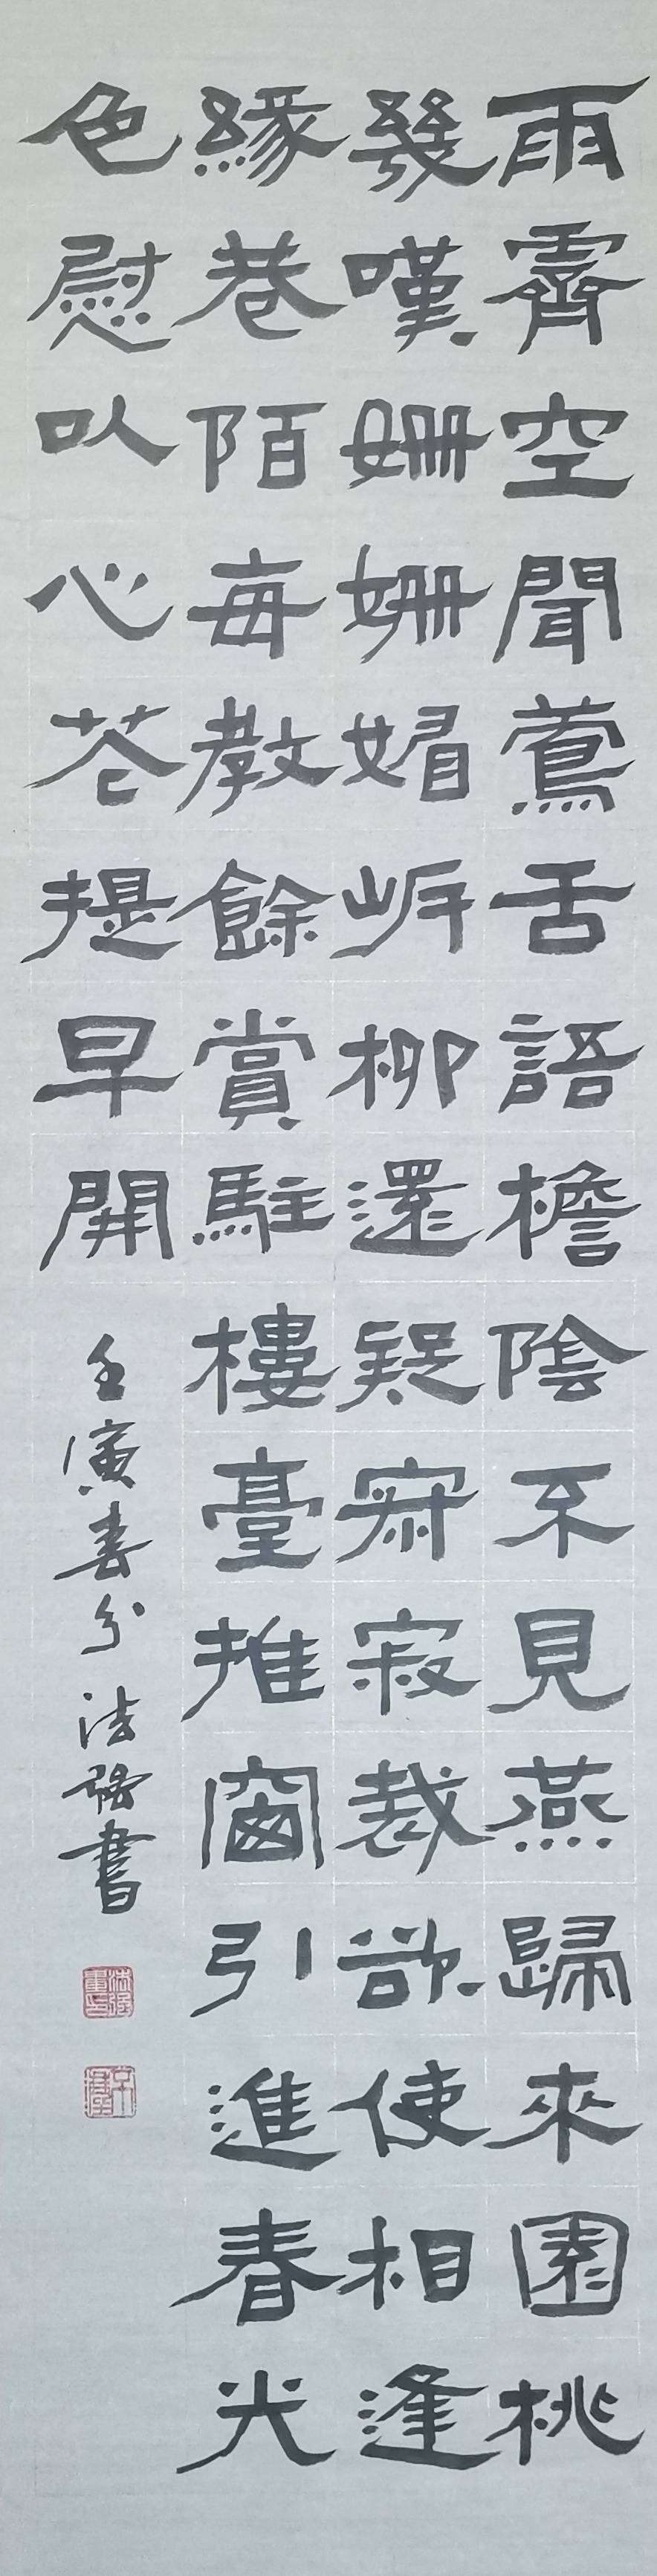 雨霽空聞鶯舌語檐陰不見燕歸來園桃
幾嘆姍姍媚岸柳還疑寂寂裁欲使相逢
緣巷陌每教餘賞駐樓臺推窗引進春光
色慰以心花提早開
壬寅春分法強書